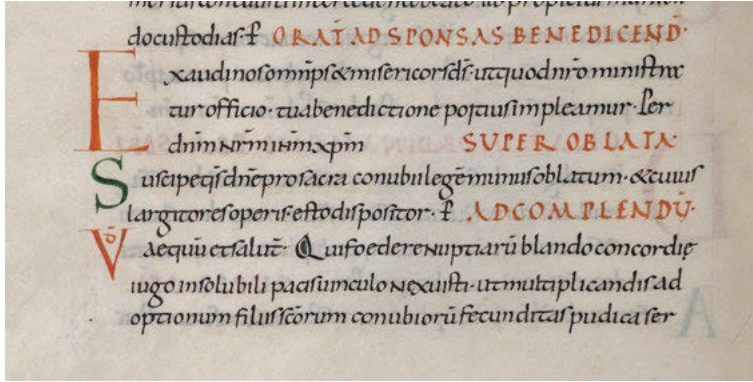 do custodias· ꝑ ORAT̄ AD SPONSAS BENEDICEND̄·
Exaudi nos omp̄s & misericors d̄s· ut quod n̄ro ministrae
tur officio· tua benedictione potius impleamur· Per
dn̄m nr̄m ihm̄ xp̄m SUPER OBLATA·
Suscipe q̄s dn̄e pro sacra conubii lege munus oblatum· & cuius
largitor es operis· esto dispositor· ꝑ AD COMPLENDŪ·
VD̄ aequū et salut̄· Qui foedere nuptiarū blando concordię
iugo insolubili pacis uinculo nexuisti· ut multiplicandis ad
optionum filiis sc̄orum conubiorū fecunditas pudica ser